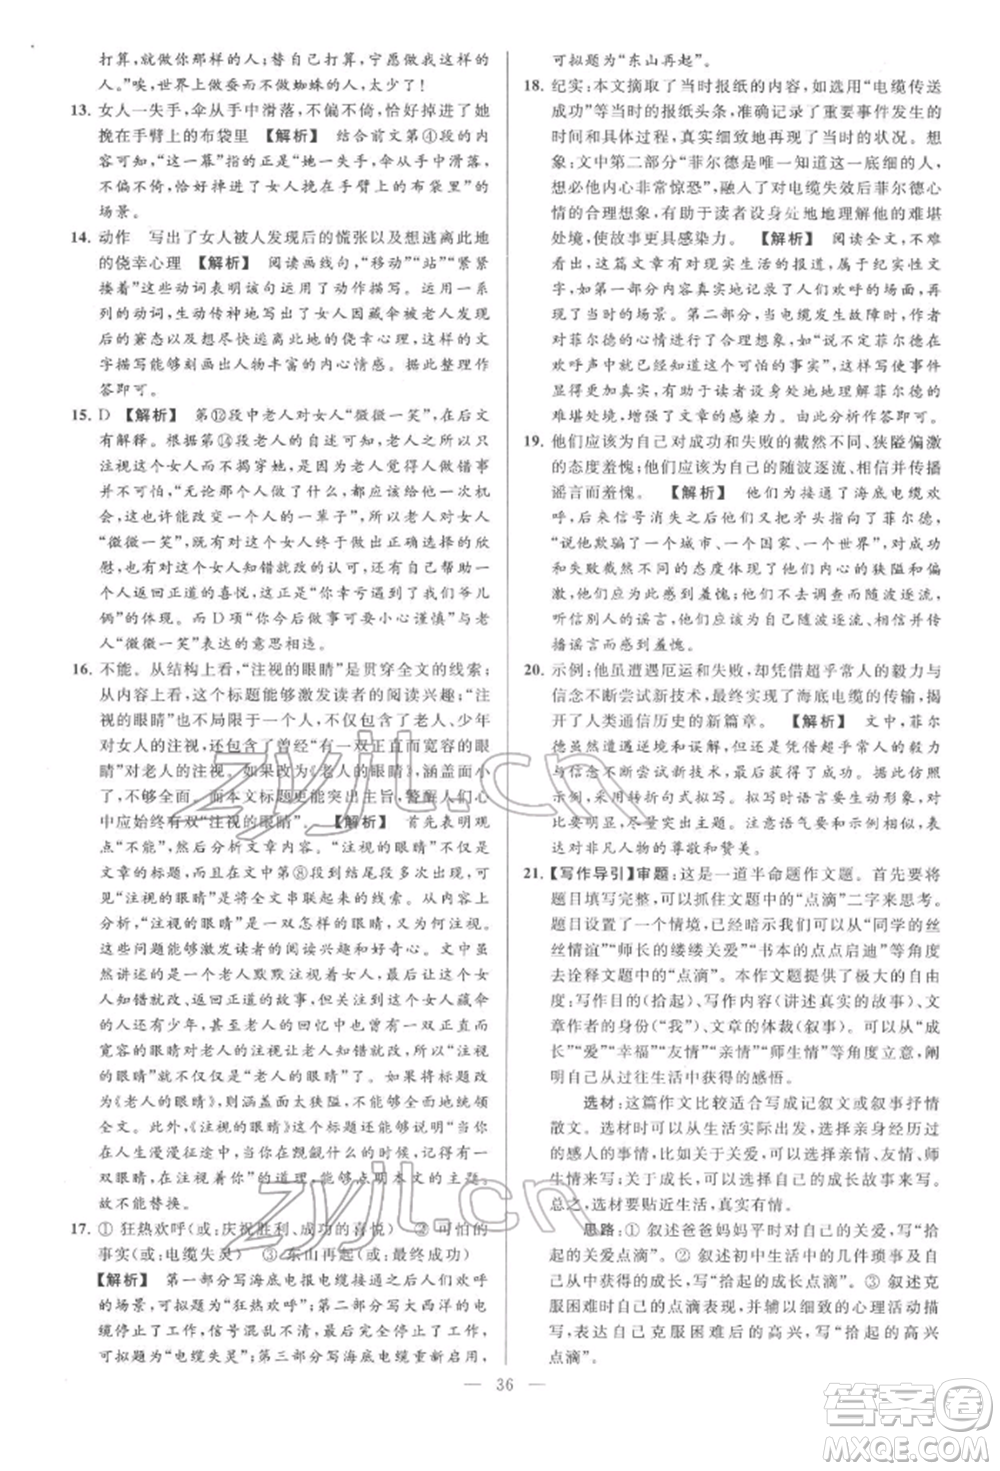 打算,就做你那样的人;替自己打算,宁愿做他那样的
人。”唉,世界上做蚕而不做蜘蛛的人,太少了!
13. 女人一失手,伞从手中滑落,不偏不倚,恰好掉进了她
挽在手臂上的布袋里 【解析】 结合前文第④段的内
容可知,“这一幕”指的是“她一失手,伞从手中滑落,
不偏不倚,恰好掉进了女人挽在手臂上的布袋里”的
场景。
14. 动作 写出了女人被人发现后的慌张以及想逃离此地
的侥幸心理 【解析】 阅读画线句,“移动”“站”“紧紧
搂着”这些动词表明该句运用了动作描写。运用一系
列的动词,生动传神地写出了女人因藏伞被老人发现
后的窘态以及想尽快逃离此地的侥幸心理,这样的动
作描写能够刻画出人物丰富的内心情感。据此整理作
答即可。
15. D 【解析】 第⑫段中老人对女人“微微一笑”,在后文
有解释。根据第⑭段老人的自述可知,老人之所以只
注视这个女人而不揭穿她,是因为老人认为像她做错事
并不可怕,“无论那个人做了什么,都应该给她一次机
会,这也许能改变一个人的一辈子”,所以老人对女人
“微微一笑”,既有对这个女人能够选择正确做法的欣
慰,也有对这个女人知错就改的认可,还有自己帮助她
人返回正道的喜悦,也是对“你幸亏遇到了我们爷儿
俩”的体现。而D项“你今后做事可要小心谨慎”与老
人“微微一笑”表达的意思相违。
16. 不能。从结构上看,“注视的眼睛”是贯穿全文的线索;
从内容上看,这个标题能够激发读者的阅读兴趣;“注
视的眼睛”也不局限于一个人,不仅包含了老人、少年
对女人的注视,还包含了曾经“有一双正直而宽容的眼
睛”对老人的注视。如果改为《老人的眼睛》,涵盖面不
大。而本文标题更能突出主旨,警醒人们心
中应始终有双“注视的眼睛”。 【解析】 首先表明观
点“不能”,然后结合文章内容分析。“注视的眼睛”不仅
是文章的标题,还在文中第⑧段开始多次出现,可以说
“注视的眼睛”就是将全文串联起来的线索。从内容上
分析,“注视的眼睛”是什么,为何注视,又有何意义。
这些问题能够激发读者的阅读兴趣和好奇心。文中虽
然讲述的是一个老人默默注视着一个女人,让这个女
人改过、返回正道的故事,但关注过这个女人藏伞
的人还有少年,甚至老人的回忆中也有一双正直而
宽容的眼睛对老人的注视让老人知错就改。所以“注视
的眼睛”不仅仅是“老人的眼睛”。如果将文章标题修
改为《老人的眼睛》,则涵盖面太狭隘,并不能概括
全文。此外,《注视的眼睛》这个标题还能够阐述“当你
在人生漫漫征途中,当你在觊觎什么的时候,你身边
有一双注视的眼睛”的道理,能够点明本文的主题。
故不能替换。
17. ① 狂热欢呼(或:庆祝胜利、成功的喜悦) ② 可怕的
事实(或:电缆失灵) ③ 东山再起(或:最终成功)
【解析】 第一部分写海底电报电缆接通之后人们欢呼
的场景,可拟题为“狂热欢呼”;第二部分写大西洋的电
缆停止了工作,信号混乱不清,最后电缆完全停止工作,
可拟题为“电缆失灵”;第三部分写海底电缆重新启用,
可拟题为“东山再起”。
18. 纪实:本文摘取了当时报纸的内容,如选用“电缆传送
成功”等当时的报纸头条,准确记录了重要事件发生的
时间和具体过程,真实细致地再现了当时的状况。想
象:文中第二部分“菲尔德是唯一知道这一底细的人,
想必他内心非常惊恐”,融入了对电缆失效后菲尔德心
情的合理想象,有助于读者设身处地地理解他的难堪
处境,使故事更具感染力。 【解析】 阅读全文,不难
看出,这篇文章有对现实生活的报道,属于纪实性文
字,如第一部分内容真实地记录了人们欢呼的场面,再
现了当时的场景。第二部分,当电缆发生故障时,作者
对菲尔德的心情进行了合理想象,如“说不定菲尔德在
欢呼声中就已经知道这个可怕的事实”,这样写使事件
显得更加真实,有助于读者设身处地地理解菲尔德的
难堪处境,增强了文章的感染力。由此分析作答即可。
19. 他们应该为自己对成功和失败的截然不同、狭隘偏激
的态度羞愧;他们应该为自己的随波逐流、相信并传播
谣言而羞愧。 【解析】 他们为接通了海底电缆欢
呼,后来信号消失之后,人们又把矛头指向菲尔德,
“说他欺骗了一个城市、一个国家、一个世界”,对成功
和失败的不同态度表明了他们内心的狭隘和偏
激,他们应该感到羞愧;他们的随波逐流、
听信别人的谣言,没有自己的主见,相信并传
播谣言而感到羞愧。
20. 示例:他虽遭遇厄运和失败,却凭借超乎常人的毅力与
信念不断尝试新技术,最终实现了海底电缆的传输,揭
开了人类通信历史的新篇章。 【解析】 文中,菲尔
德虽然遭遇逆境和误解,却凭借超乎常人的毅力
与信念不断尝试新技术,最后获得了成功。据此仿照
示例,采用转折句式拟写。拟写时语言要生动形象,对
比要明显,尽量突出主题。注意语气要和示例相似,表
达出对非凡人物的尊敬和赞美。
21. 【写作导引】审题:这是一道半命题作文题。首先要将
题目填写完整,可以抓住文题中“点滴”二字来思考。
题目创设了一个情境,已经暗示我们可以从“同学的丝
丝情谊”“师长的缕缕关爱”“书本的点点启迪”等角度
去诠释文题中的“点滴”。本作文题给予了极大的自由
度;写作目的(拾起)、写作内容(讲述真实的故事)、
文章作者的身份(“我”)、文章的体裁(叙事)。可以从“成
长”“爱”“幸福”“友情”“亲情”“师生情”等角度立意,阐
明自己从过往生活中获得的感悟。
选材:这篇作文比较适合写成记叙文或叙事抒情
散文。选材时可以从生活实际出发,选择亲身经历过
的感人的事情,比如关于关爱,可以选择亲情、友情、师
生情来写;关于成长,可以选择自己成长的故事来写。
总之,选材要贴近生活,真实有情。
思路:① 叙述爸爸妈妈平时对自己的关爱,写“拾
起的关爱点滴”。② 叙述初中生活中的几件琐事及自
己在这些事情中的成长,写“拾起的成长点滴”。③ 叙述克
服困难时自己的点滴表现,并辅以细致的心理活动描
写,表达自己克服困难后的高兴,写“拾起的高兴
点滴”。
— 36 —
zyjl.cn
zyjl.cn
答案圈
MXQE.COM